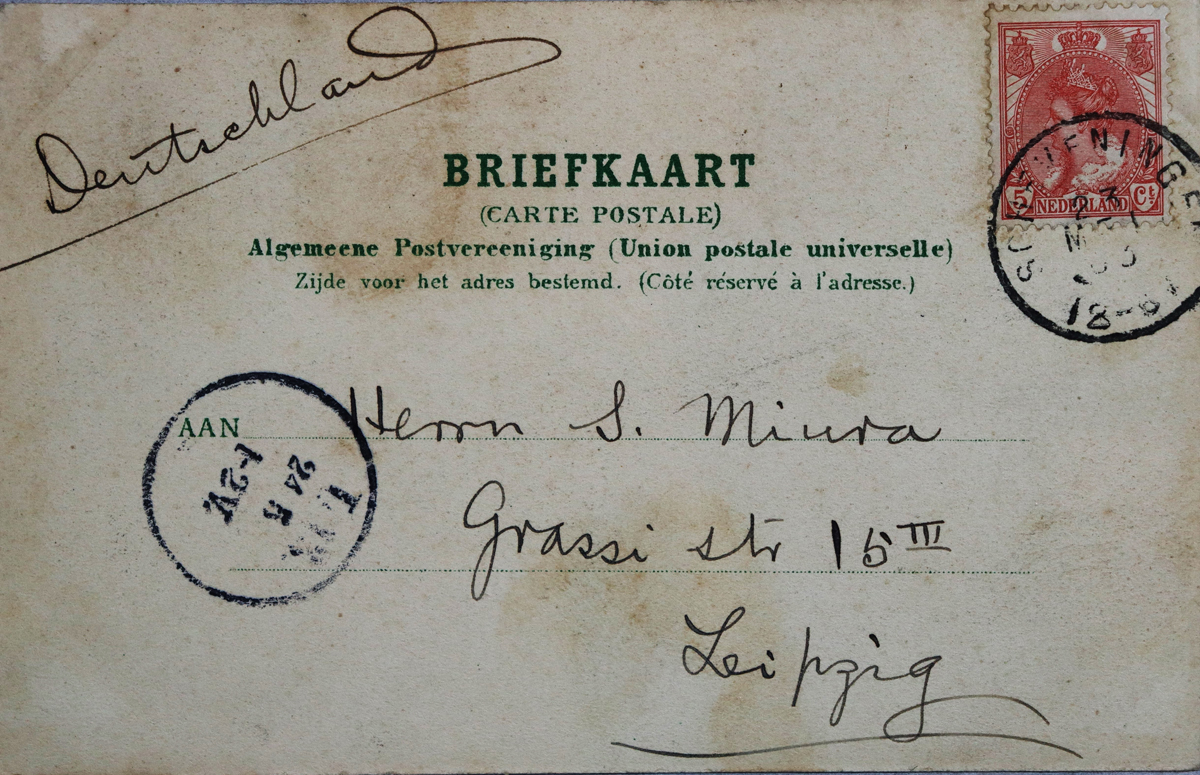 Deutschland
BRIEFKAART
(CARTE POSTALE)
Algemeene Postvereeniging (Union postale universelle)
Zijde voor het adres bestemd. (Côté réservé à l'adresse.)
5 NEDERLAND Ct
SCHEVENINGEN
23
AAN Herrn S. Miura
1-2V.
24
Grassi str 15 III
Leipzig